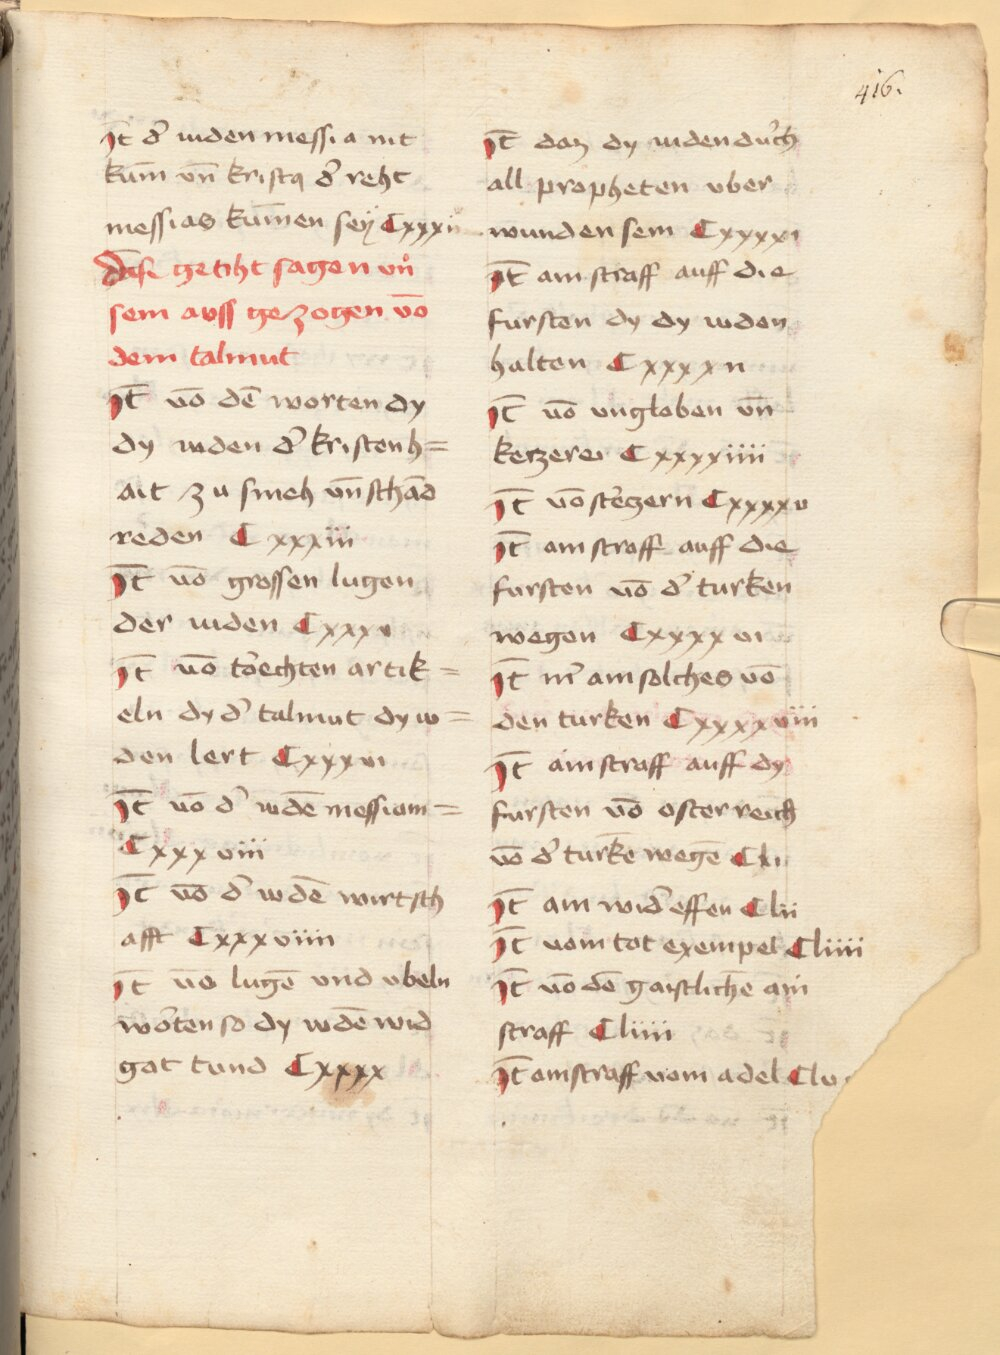 416.
Itē d' iuden messia nit
kūm vn̄ kristꝯ d' reht
messias kūmen seÿ Cxxxii
Dise getiht sagen vn̄
sein auss gezogen vō
dem talmut
Itē vō dē worten dy
dy iuden d' kristenh=
ait zu smeh vn̄ schād
reden Cxxxiii
Itē vō grossen lugen
der iuden Cxxxv
Itē vō torechten artik=
eln dy d' talmut dy iu=
den lert Cxxxvi
Itē vō d' iudē messiam=
Cxxxviii
Itē vō d' iudē wirtsch
afft Cxxxviiii
Itē vō lugē vnd vbeln
worten so dy iudē wid
got tund Cxxxx
Itē daz dy iuden durch
all propheten vber
wunden sein Cxxxxi
Itē ain straff auff die
fursten dy dy iuden
halten Cxxxxii
Itē vō vngloben vn̄
keczerei Cxxxxiiii
Itē vō steczern Cxxxxv
Itē ain straff auff die
fursten vō d' turken
wegen Cxxxxvi
Itē m' ain solches vō
den turken Cxxxxviii
Itē ain straff auff dy
fursten vō osterreich
vō d' turkē wegē Cli
Itē ain wid'effen Clii
Itē vom tot exempel Cliiii
Itē vō dē gaistlichē ain
straff Cliiii
Itē ain straff vom adel Clv